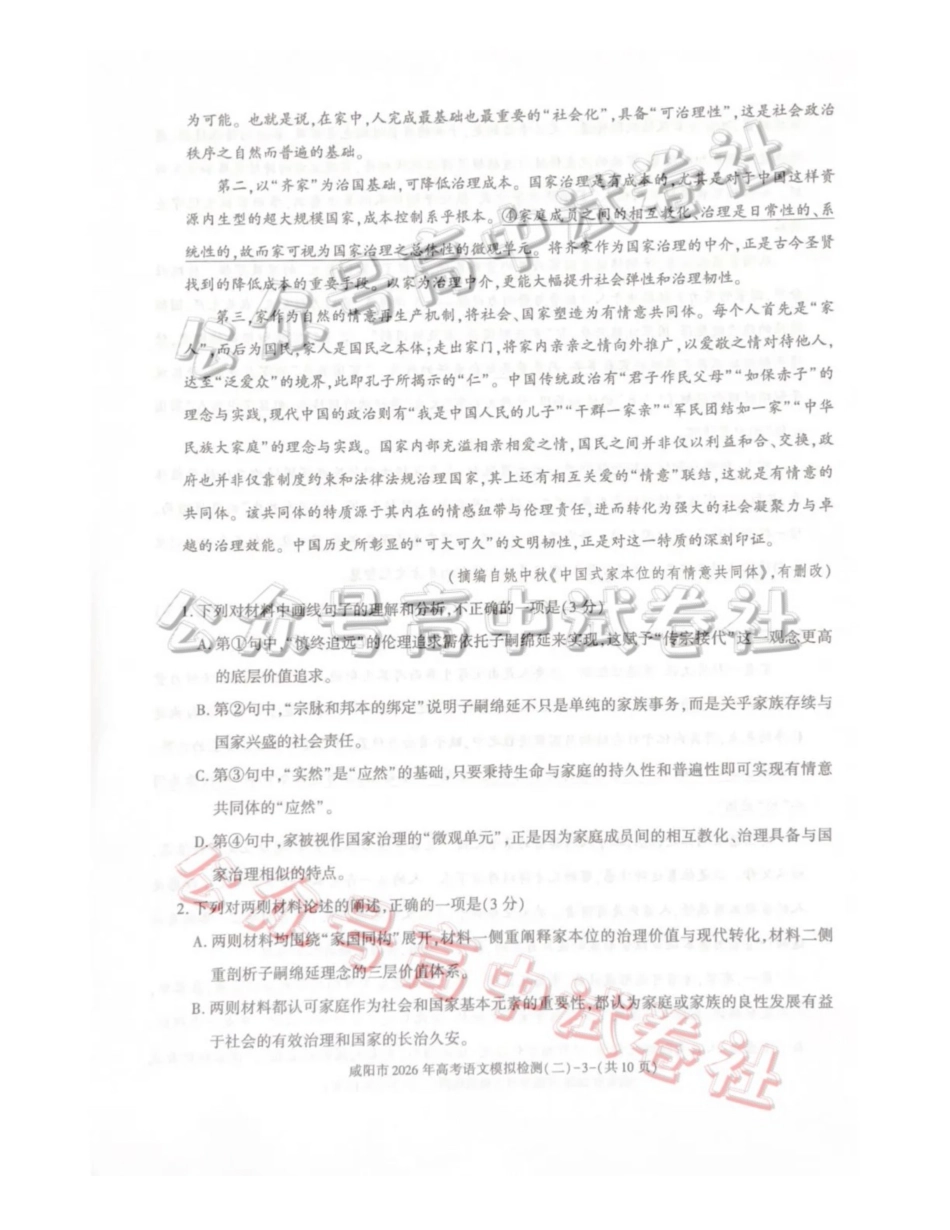 为可能。也就是说,在家中,人完成最基础也最重要的“社会化”,具备“可治理性”,这是社会政治
秩序之自然而普遍的基础。
第二,以“齐家”为治国基础,可降低治理成本。国家治理是有成本的,尤其是对于中国这样资
源内生型的超大规模国家,成本控制系乎根本。④家庭成员之间的相互教化、治理是日常性的、系
统性的,故而家可视为国家治理之总体性的微观单元。将齐家作为国家治理的中介,正是古今圣贤
找到的降低成本的重要手段。以家为治理中介,更能大幅提升社会弹性和治理韧性。
第三,家作为自然的情意再生产机制,将社会、国家塑造为有情意共同体。每个人首先是“家
人”,而后为国民,家人是国民之本体;走出家门,将家内亲亲之情向外推广,以爱敬之情对待他人,
达至“泛爱众”的境界,此即孔子所揭示的“仁”。中国传统政治有“君子作民父母”“如保赤子”的
理念与实践,现代中国的政治则有“我是中国人民的儿子”“干群一家亲”“军民团结如一家”“中华
民族大家庭”的理念与实践。国家内部充溢相亲相爱之情,国民之间并非仅以利益和合、交换,政
府也并非仅靠制度约束和法律法规治理国家,其上还有相互关爱的“情意”联结,这就是有情意的
共同体。该共同体的特质源于其内在的情感纽带与伦理责任,进而转化为强大的社会凝聚力与卓
越的治理效能。中国历史所彰显的“可大可久”的文明韧性,正是对这一特质的深刻印证。
(摘编自姚中秋《中国式家本位的有情意共同体》,有删改)
1. 下列对材料中画线句子的理解和分析,不正确的一项是(3 分)
A. 第①句中,“慎终追远”的伦理追求需依托子嗣绵延来实现,这赋予“传宗接代”这一观念更高
的底层价值追求。
B. 第②句中,“宗脉和邦本的绑定”说明子嗣绵延不只是单纯的家族事务,而是关乎家族存续与
国家兴盛的社会责任。
C. 第③句中,“实然”是“应然”的基础,只要秉持生命与家庭的持久性和普遍性即可实现有情意
共同体的“应然”。
D. 第④句中,家被视作国家治理的“微观单元”,正是因为家庭成员间的相互教化、治理具备与国
家治理相似的特点。
2. 下列对两则材料论述的阐述,正确的一项是(3 分)
A. 两则材料均围绕“家国同构”展开,材料一侧重阐释家本位的治理价值与现代转化,材料二侧
重剖析子嗣绵延理念的三层价值体系。
B. 两则材料都认可家庭作为社会和国家基本元素的重要性,都认为家庭或家族的良性发展有益
于社会的有效治理和国家的长治久安。
咸阳市 2026 年高考语文模拟检测(二)-3-(共 10 页)
公众号高中试卷社
公众号高中试卷社
公众号高中试卷社